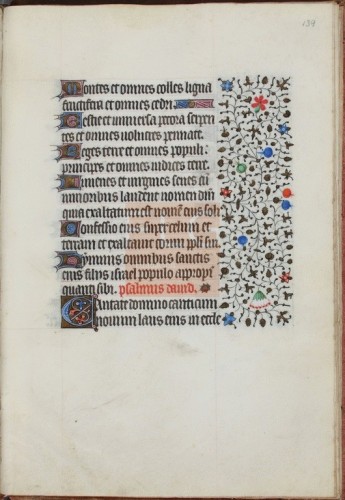 139
Montes et omnes colles ligna
fructifera et omnes cedri.
Bestie et universa pecora serpen
tes et omnes volucres pennate.
Reges terre et omnes populi
principes et omnes iudices terre.
Iuvenes et virgines senes cu
iunioribus laudent nomen dni
quia exaltatum est nomen eius soli.
Confessio eius super celum et
terram et exaltavit cornu ppli sui
Hymnus omnibus sanctis
eius filiis israel populo appropi
quanti sibi. psalmus david.
Cantate domino canticum
novum laus eius in eccle